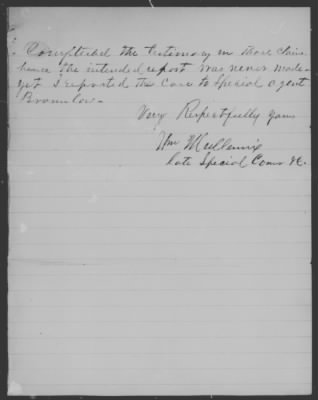 Completed the testimony in those claims
hence the intended report was never made
yet I reported the case to Special agent
Brownlow.
Very Respectfully yours
Wm
late Special Comr &c.